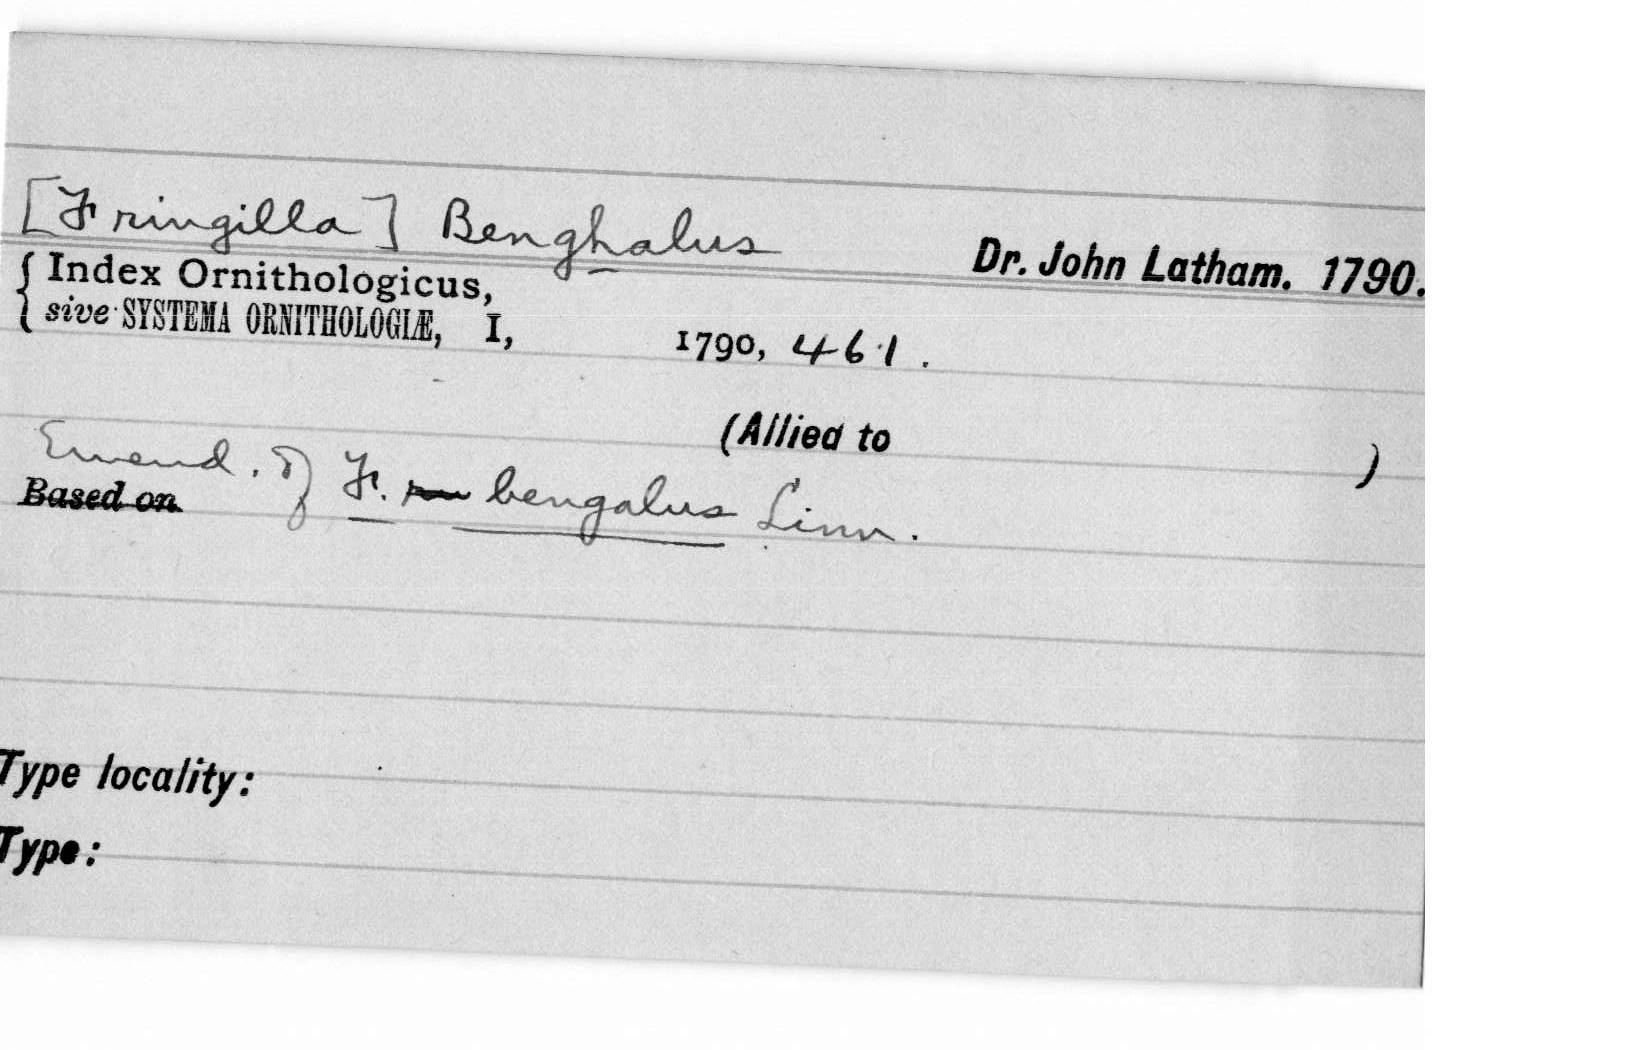 [Fringilla] Benghalus
Dr. John Latham. 1790.
Index Ornithologicus,
sive SYSTEMA ORNITHOLOGIÆ, I, 1790, 461.
(Allied to )
Emend. of F. bengalus Linn.
Based on
Type locality:
Type: